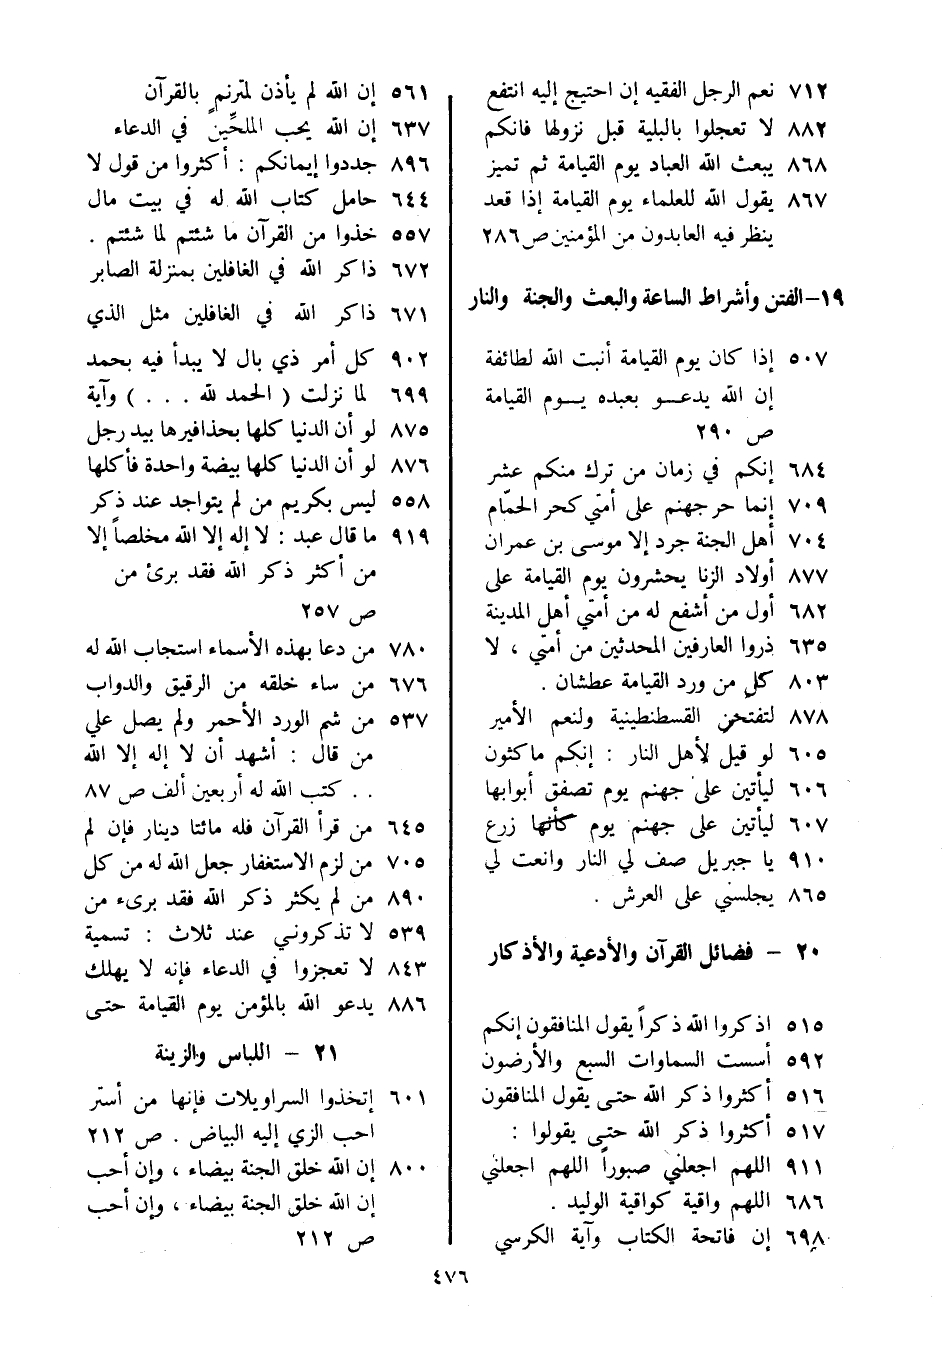 ٧١٢ نعم الرجل الفقيه إن احتيج إليه انتفع
٨٨٢ لا تعجلوا بالبلية قبل نزولها فانكم
٨٦٨ يبعث الله العباد يوم القيامة ثم تميز
٨٦٧ يقول الله للعلماء يوم القيامة إذا قعد
ينظر فيه العابدون من المؤمنين ص ٢٨٦
١٩-الفتن وأشراط الساعة والبعث والجنة والنار
٥٠٧ إذا كان يوم القيامة أنبت الله لطائفة
إن الله يدعــو بعبده يــوم القيامة
ص ٢٩٠
٦٨٤ إنكم في زمان من ترك منكم عشر
٧٠٩ إنما حر جهنم على أمتي كحر الحمّام
٧٠٤ أهل الجنة جرد إلا موسى بن عمران
٨٧٧ أولاد الزنا يحشرون يوم القيامة على
٦٨٢ أول من أشفع له من أمتي أهل المدينة
٦٣٥ ذروا العارفين المحدثين من أمتي ، لا
٨٠٣ كل من ورد القيامة عطشان .
٨٧٨ لتفتحن القسطنطينية ولنعم الأمير
٦٠٥ لو قيل لأهل النار : إنكم ماكثون
٦٠٦ ليأتين على جهنم يوم تصفق أبوابها
٦٠٧ ليأتين على جهنم يوم كأنها زرع
٩١٠ يا جبريل صف لي النار وانعت لي
٨٦٥ يجلسني على العرش .
٢٠ - فضائل القرآن والأدعية والأذكار
٥١٥ اذكروا الله ذكراً يقول المنافقون إنكم
٥٩٢ أسست السماوات السبع والأرضون
٥١٦ أكثروا ذكر الله حتى يقول المنافقون
٥١٧ أكثروا ذكر الله حتى يقولوا :
٩١١ اللهم اجعلني صبوراً اللهم اجعلني
٦٨٦ اللهم واقية كواقية الوليد .
٦٩٨ إن فاتحة الكتاب وآية الكرسي
٥٦١ إن الله لم يأذن لمترنم بالقرآن
٦٣٧ إن الله يحب الملحّين في الدعاء
٨٩٦ جددوا إيمانكم : أكثروا من قول لا
٦٤٤ حامل كتاب الله له في بيت مال
٥٥٧ خذوا من القرآن ما شئتم لما شئتم .
٦٧٢ ذاكر الله في الغافلين بمنزلة الصابر
٦٧١ ذاكر الله في الغافلين مثل الذي
٩٠٢ كل أمر ذي بال لا يبدأ فيه بحمد
٦٩٩ لما نزلت ( الحمد لله . . . ) وآية
٨٧٥ لو أن الدنيا كلها بحذافيرها بيد رجل
٨٧٦ لو أن الدنيا كلها بيضة واحدة فأكلها
٥٥٨ ليس بكريم من لم يتواجد عند ذكر
٩١٩ ما قال عبد : لا إله إلا الله مخلصاً إلا
من أكثر ذكر الله فقد برئ من
ص ٢٥٧
٧٨٠ من دعا بهذه الأسماء استجاب الله له
٦٧٦ من ساء خلقه من الرقيق والدواب
٥٣٧ من شم الورد الأحمر ولم يصل علي
من قال : أشهد أن لا إله إلا الله
. . كتب الله له أربعين ألف ص ٨٧
٦٤٥ من قرأ القرآن فله مائتا دينار فإن لم
٧٠٥ من لزم الاستغفار جعل الله له من كل
٨٩٠ من لم يكثر ذكر الله فقد برىء من
٥٣٩ لا تذكروني عند ثلاث : تسمية
٨٤٣ لا تعجزوا في الدعاء فإنه لا يهلك
٨٨٦ يدعو الله بالمؤمن يوم القيامة حتى
٢١ - اللباس والزينة
٦٠١ إتخذوا السراويلات فإنها من أستر
احب الزي إليه البياض . ص ٢١٢
٨٠٠ إن الله خلق الجنة بيضاء ، وإن أحب
إن الله خلق الجنة بيضاء ، وإن أحب
ص ٢١٢
٤٧٦